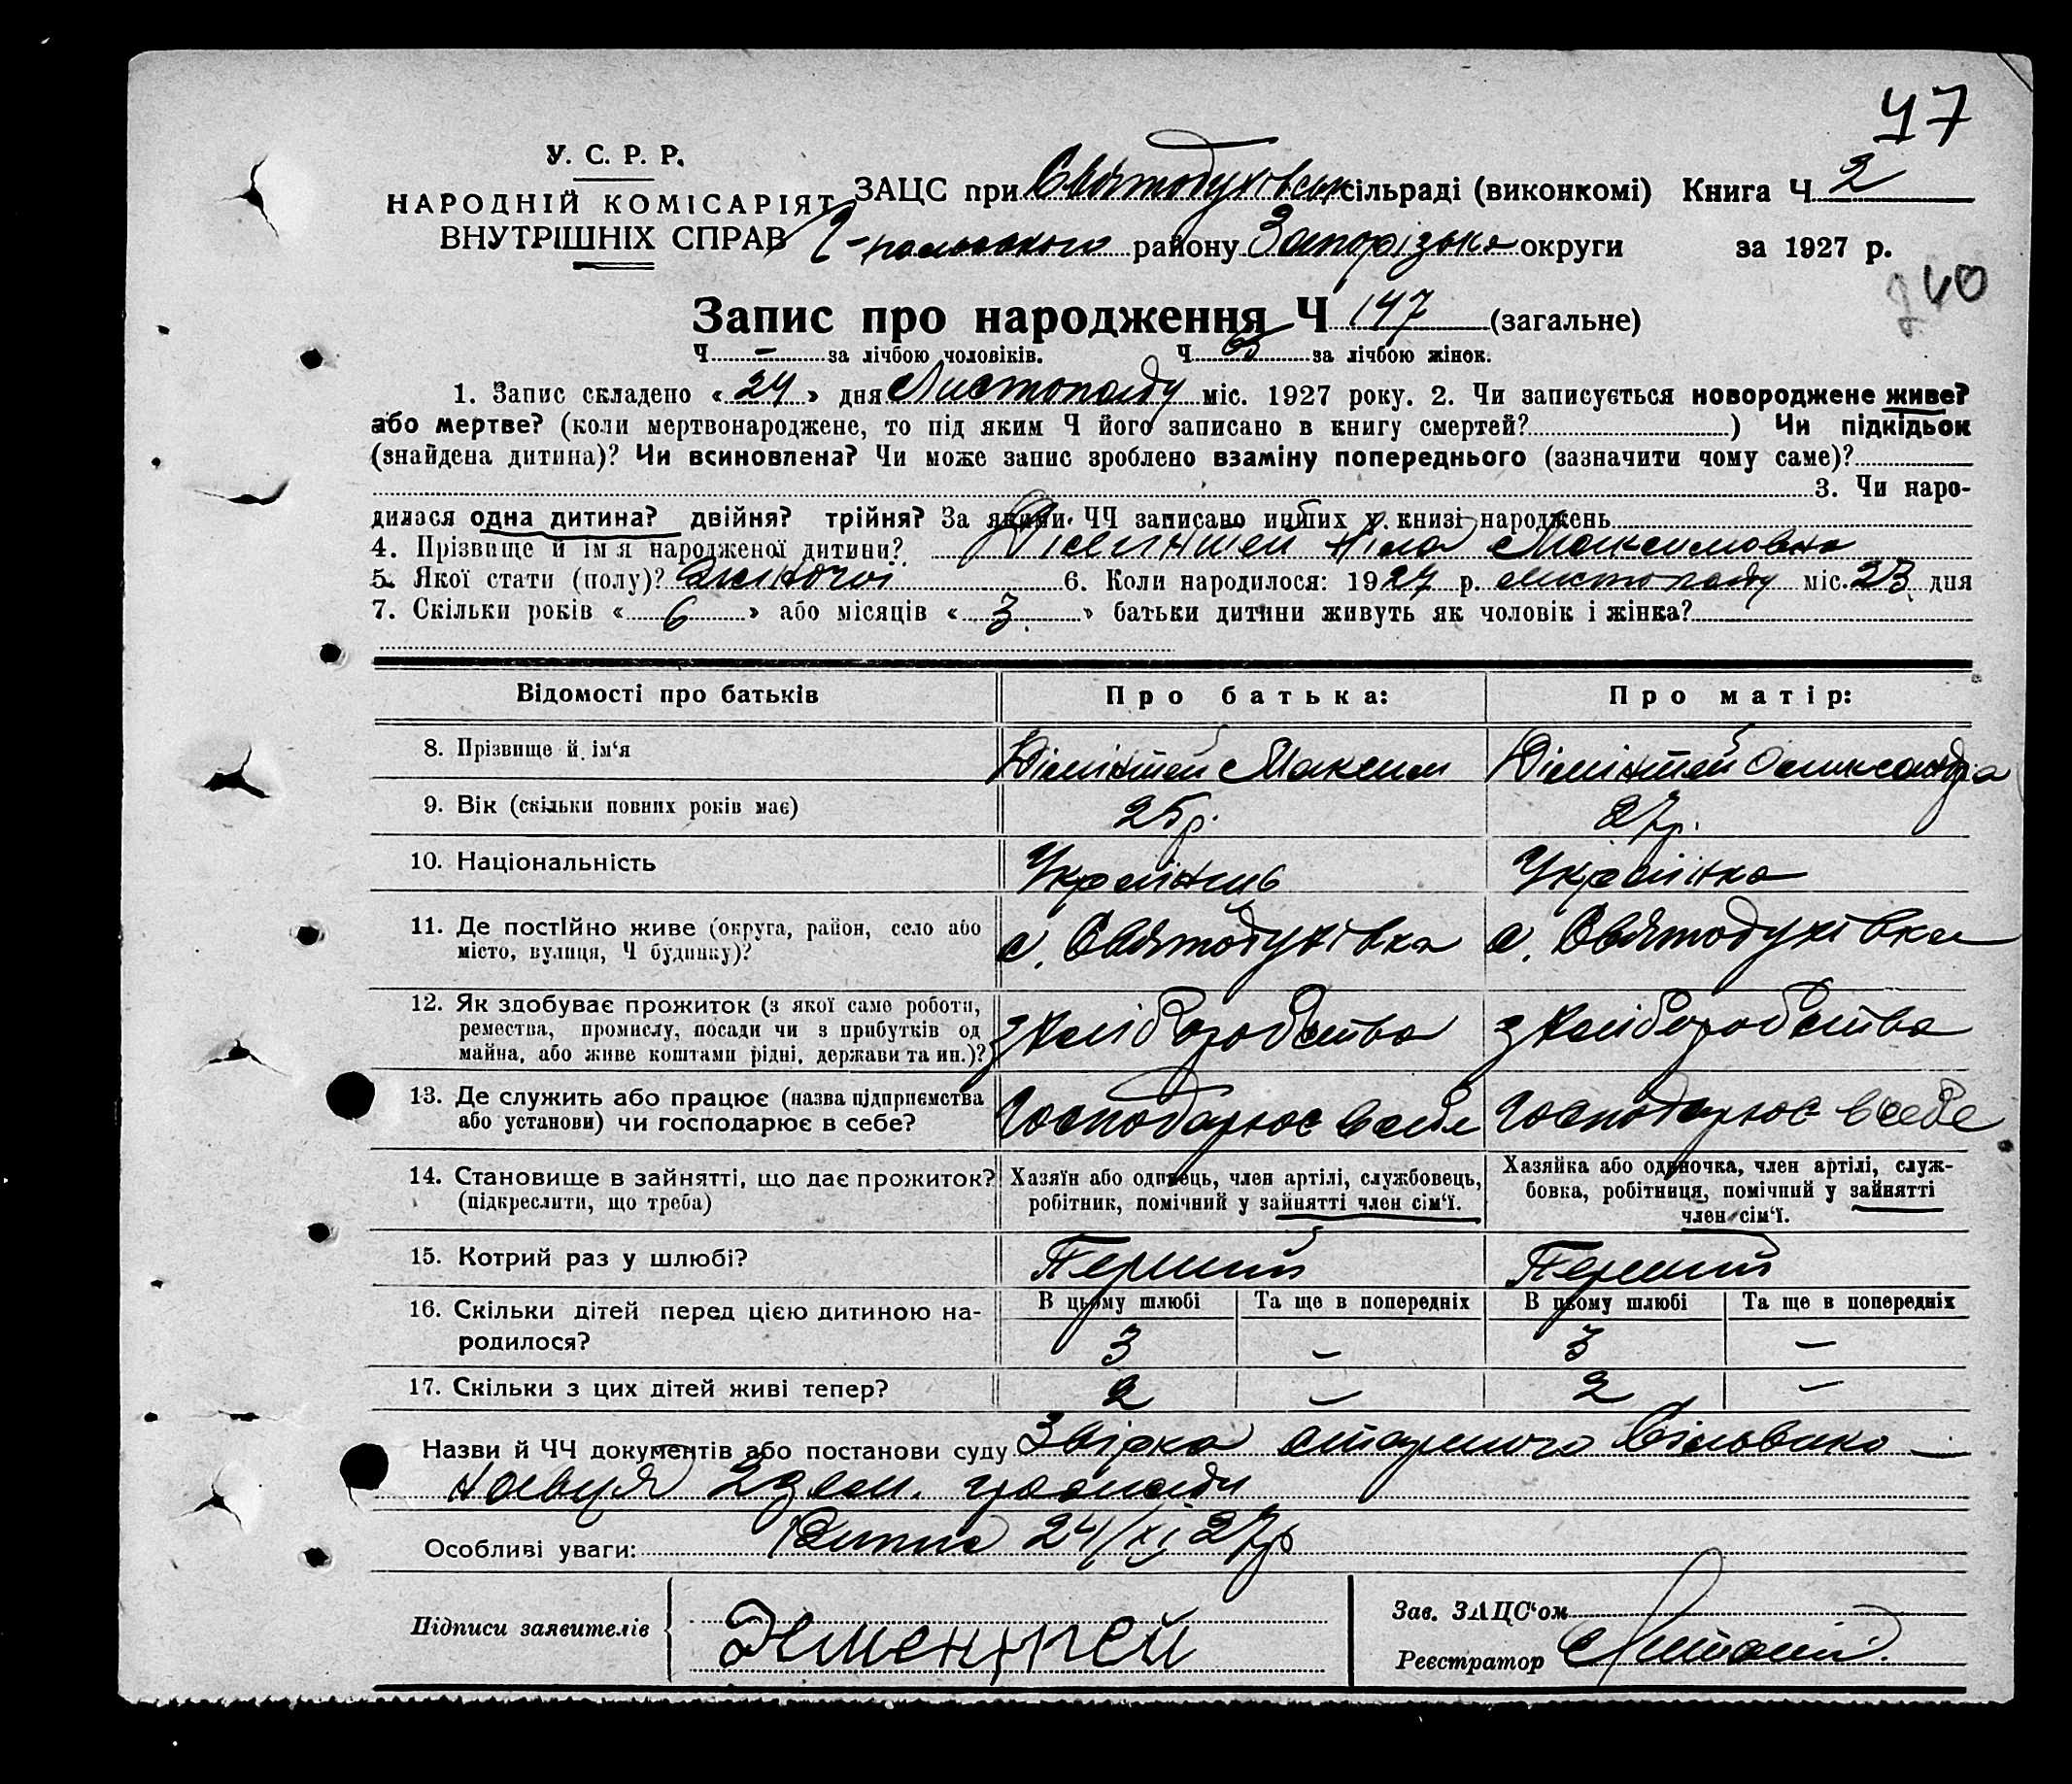 47
У. С. Р. Р.
НАРОДНІЙ КОМІСАРІЯТ
ВНУТРІШНІХ СПРАВ
ЗАЦС при Святодухівськ. сільраді (виконкомі) Книга Ч 2
району Запорізьке округи за 1927 р.
240
Запис про народження Ч 147 (загальне)
Ч – за лічбою чоловіків. Ч 65 за лічбою жінок.
1. Запис складено « 24 » дня Листопаду міс. 1927 року. 2. Чи записується новороджене живе?
або мертве? (коли мертвонароджене, то під яким Ч його записано в книгу смертей? ) Чи підкідьок
(знайдена дитина)? Чи всиновлена? Чи може запис зроблено взаміну попереднього (зазначити чому саме)?
3. Чи наро-
дилася одна дитина? двійня? трійня? За якими ЧЧ записано инших у книзі народжень
4. Прізвище й ім'я народженої дитини? Максимовна
5. Якої стати (полу)? жіночої 6. Коли народилося: 1927 р. листопаду міс. 23 дня
7. Скільки років « 6 » або місяців « 3 » батьки дитини живуть як чоловік і жінка?
Відомості про батьків
Про батька:
Про матір:
8. Прізвище й ім'я
Дімінтей Максим
Дімінтей Олександра
9. Вік (скільки повних років має)
25 р.
27 р.
10. Національність
Українець
Українка
11. Де постійно живе (округа, район, село або
місто, вулиця, Ч будинку)?
с. Святодухівка
с. Святодухівка
12. Як здобуває прожиток (з якої саме роботи,
ремества, промислу, посади чи з прибутків од
майна, або живе коштами рідні, держави та ин.)?
з хліборобства
з хліборобства
13. Де служить або працює (назва підприємства
або установи) чи господарює в себе?
Господарює в себе
Господарює в себе
14. Становище в зайнятті, що дає прожиток?
(підкреслити, що треба)
Хазяїн або одинець, член артілі, службовець,
робітник, помічний у зайнятті член сім'ї.
Хазяйка або одиночка, член артілі, служ-
бовка, робітниця, помічний у зайнятті
член сім'ї.
15. Котрий раз у шлюбі?
Перший
Перший
16. Скільки дітей перед цією дитиною на-
родилося?
В цьому шлюбі
Та ще в попередніх
В цьому шлюбі
Та ще в попередніх
3
–
3
–
17. Скільки з цих дітей живі тепер?
2
–
2
–
Назви й ЧЧ документів або постанови суду Звірка старшого
2 зем. громади
Особливі уваги: 24/XI 27р
Підписи заявителів
Дементей
Зав. ЗАЦС'ом
Реєстратор